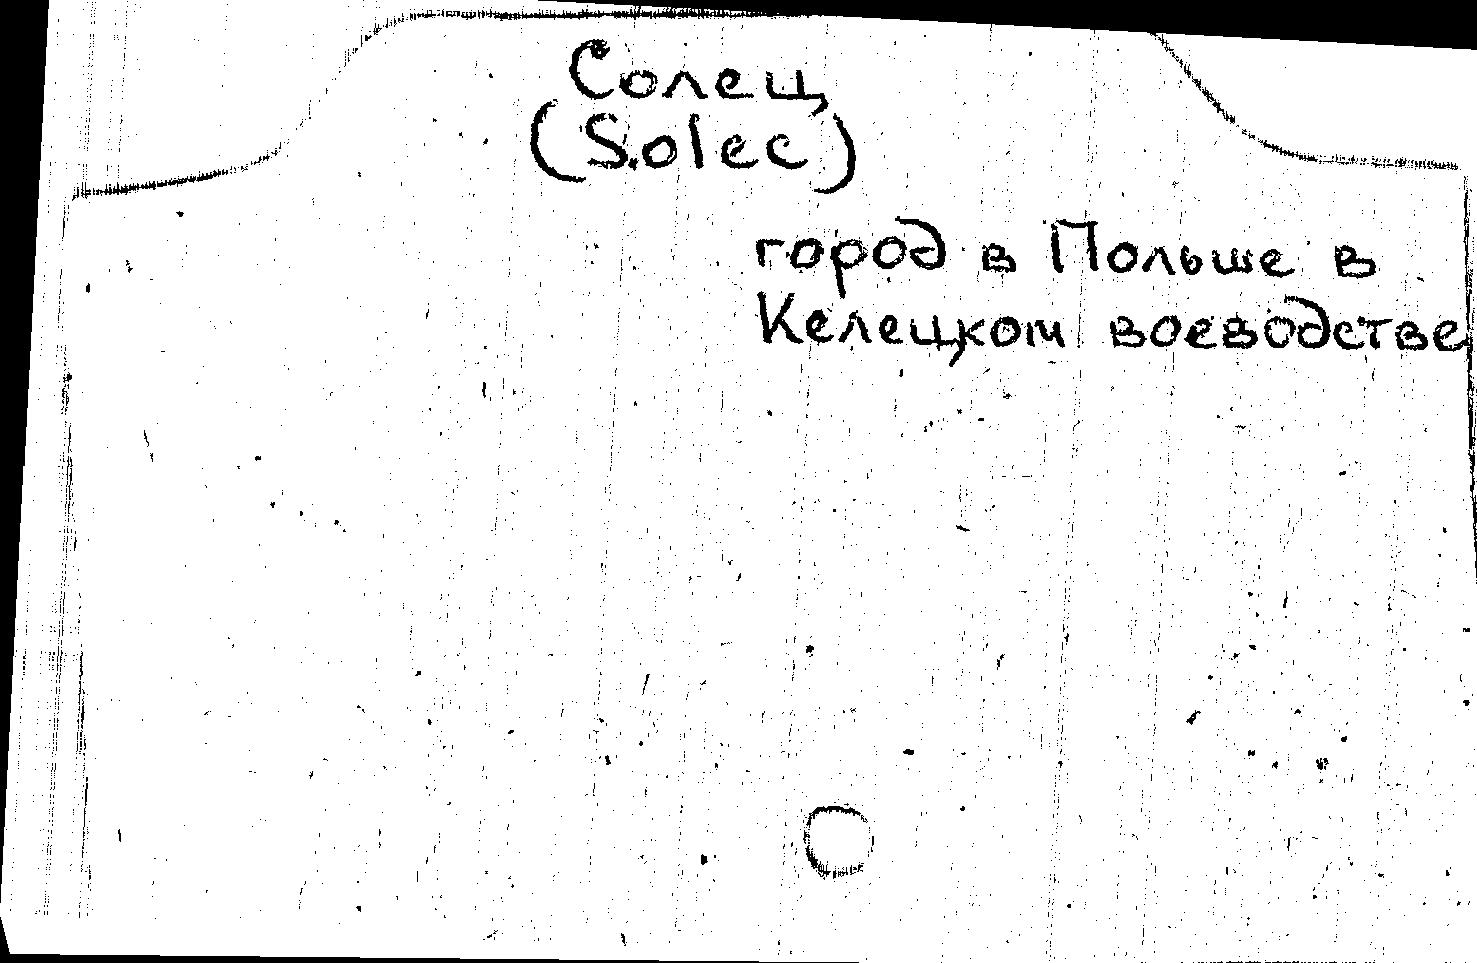 Солец
(Solec)
город в Польше в
Келецком воеводстве